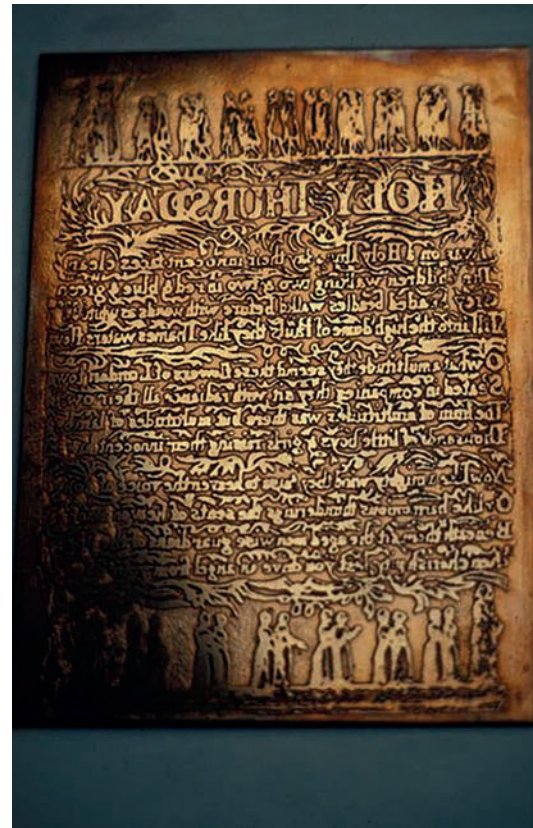 HOLY THURSDAY
Twas on a Holy Thursday their innocent faces clean
The children walking two & two in red & blue & green
Grey headed beadles walkd before with wands as white as
Till into the high dome of Pauls they like Thames waters flow
O what a multitude they seemd these flowers of London town
Seated in companies they sit with radiance all their own
The hum of multitudes was there but multitudes of lambs
Thousands of little boys & girls raising their innocent
Now like a mighty wind they raise to heaven the voice of
Or like harmonious thunderings the seats of heaven
Beneath them sit the aged men wise guardians of
Then cherish pity, lest you drive an angel from